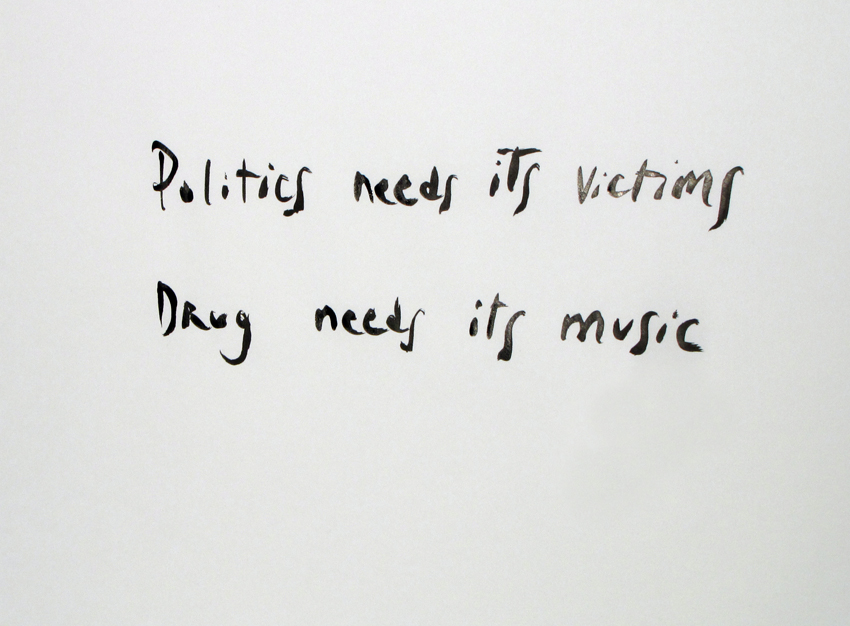 Politics needs its victims
Drug needs its music